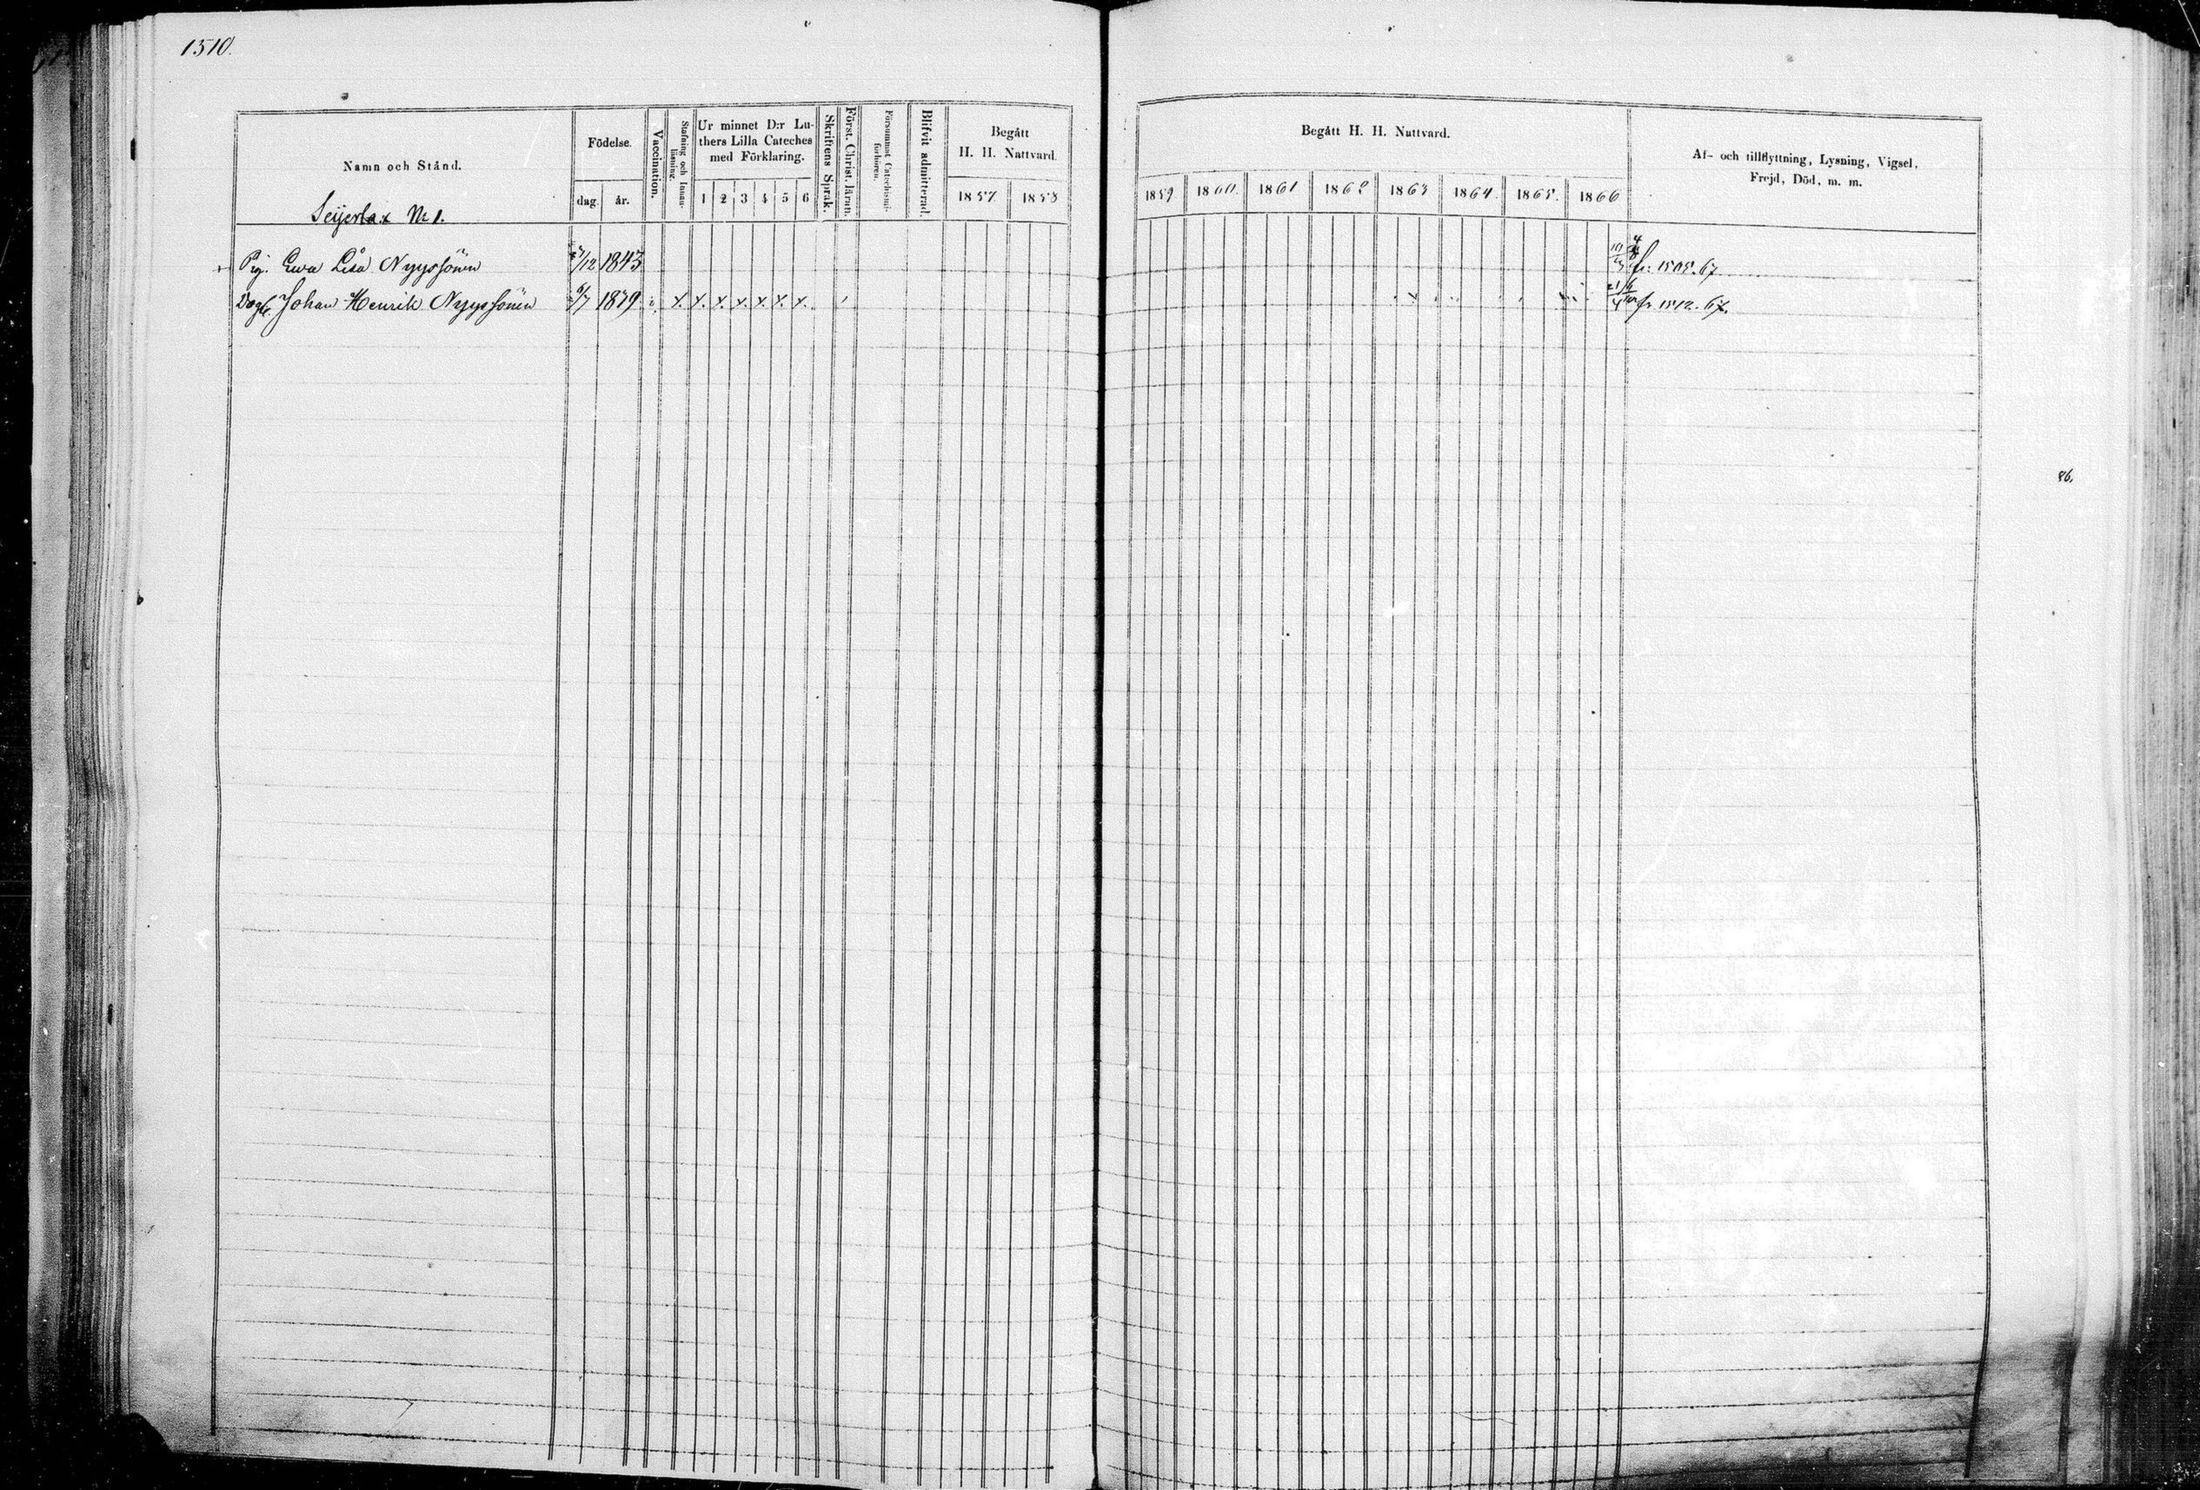 1510.
Namn och Stånd.
Födelse.
dag.
år.
Vaccination.
Stafning och Innanläsning.
Ur minnet D:r Luthers Lilla Cateches med Förklaring.
1 2 3 4 5 6
Skriftens Språk.
Först. Christ. läran.
Försummat Catechismiförhören.
Blifvit admitterad.
Begått
H. H. Nattvard.
1857 1858
Begått H. H. Nattvard.
1859 1860. 1861 1862 1863 1864. 1865. 1866
Af- och tillflyttning, Lysning, Vigsel,
Frejd, Död, m. m.
Seijerlax No 1.
Pig. Ewa Lisa Nyyssönen /12 1843 fr. 1505. 67
Johan Henrik Nyyssönen 6/7 1879 x. x. x. x. x. x. x. fr. 1512. 67.
86.